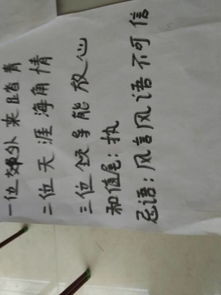 一位郊外来踏青
二位天涯海角情
三位能放心
和值尾:执
忌语:风言风语不可信